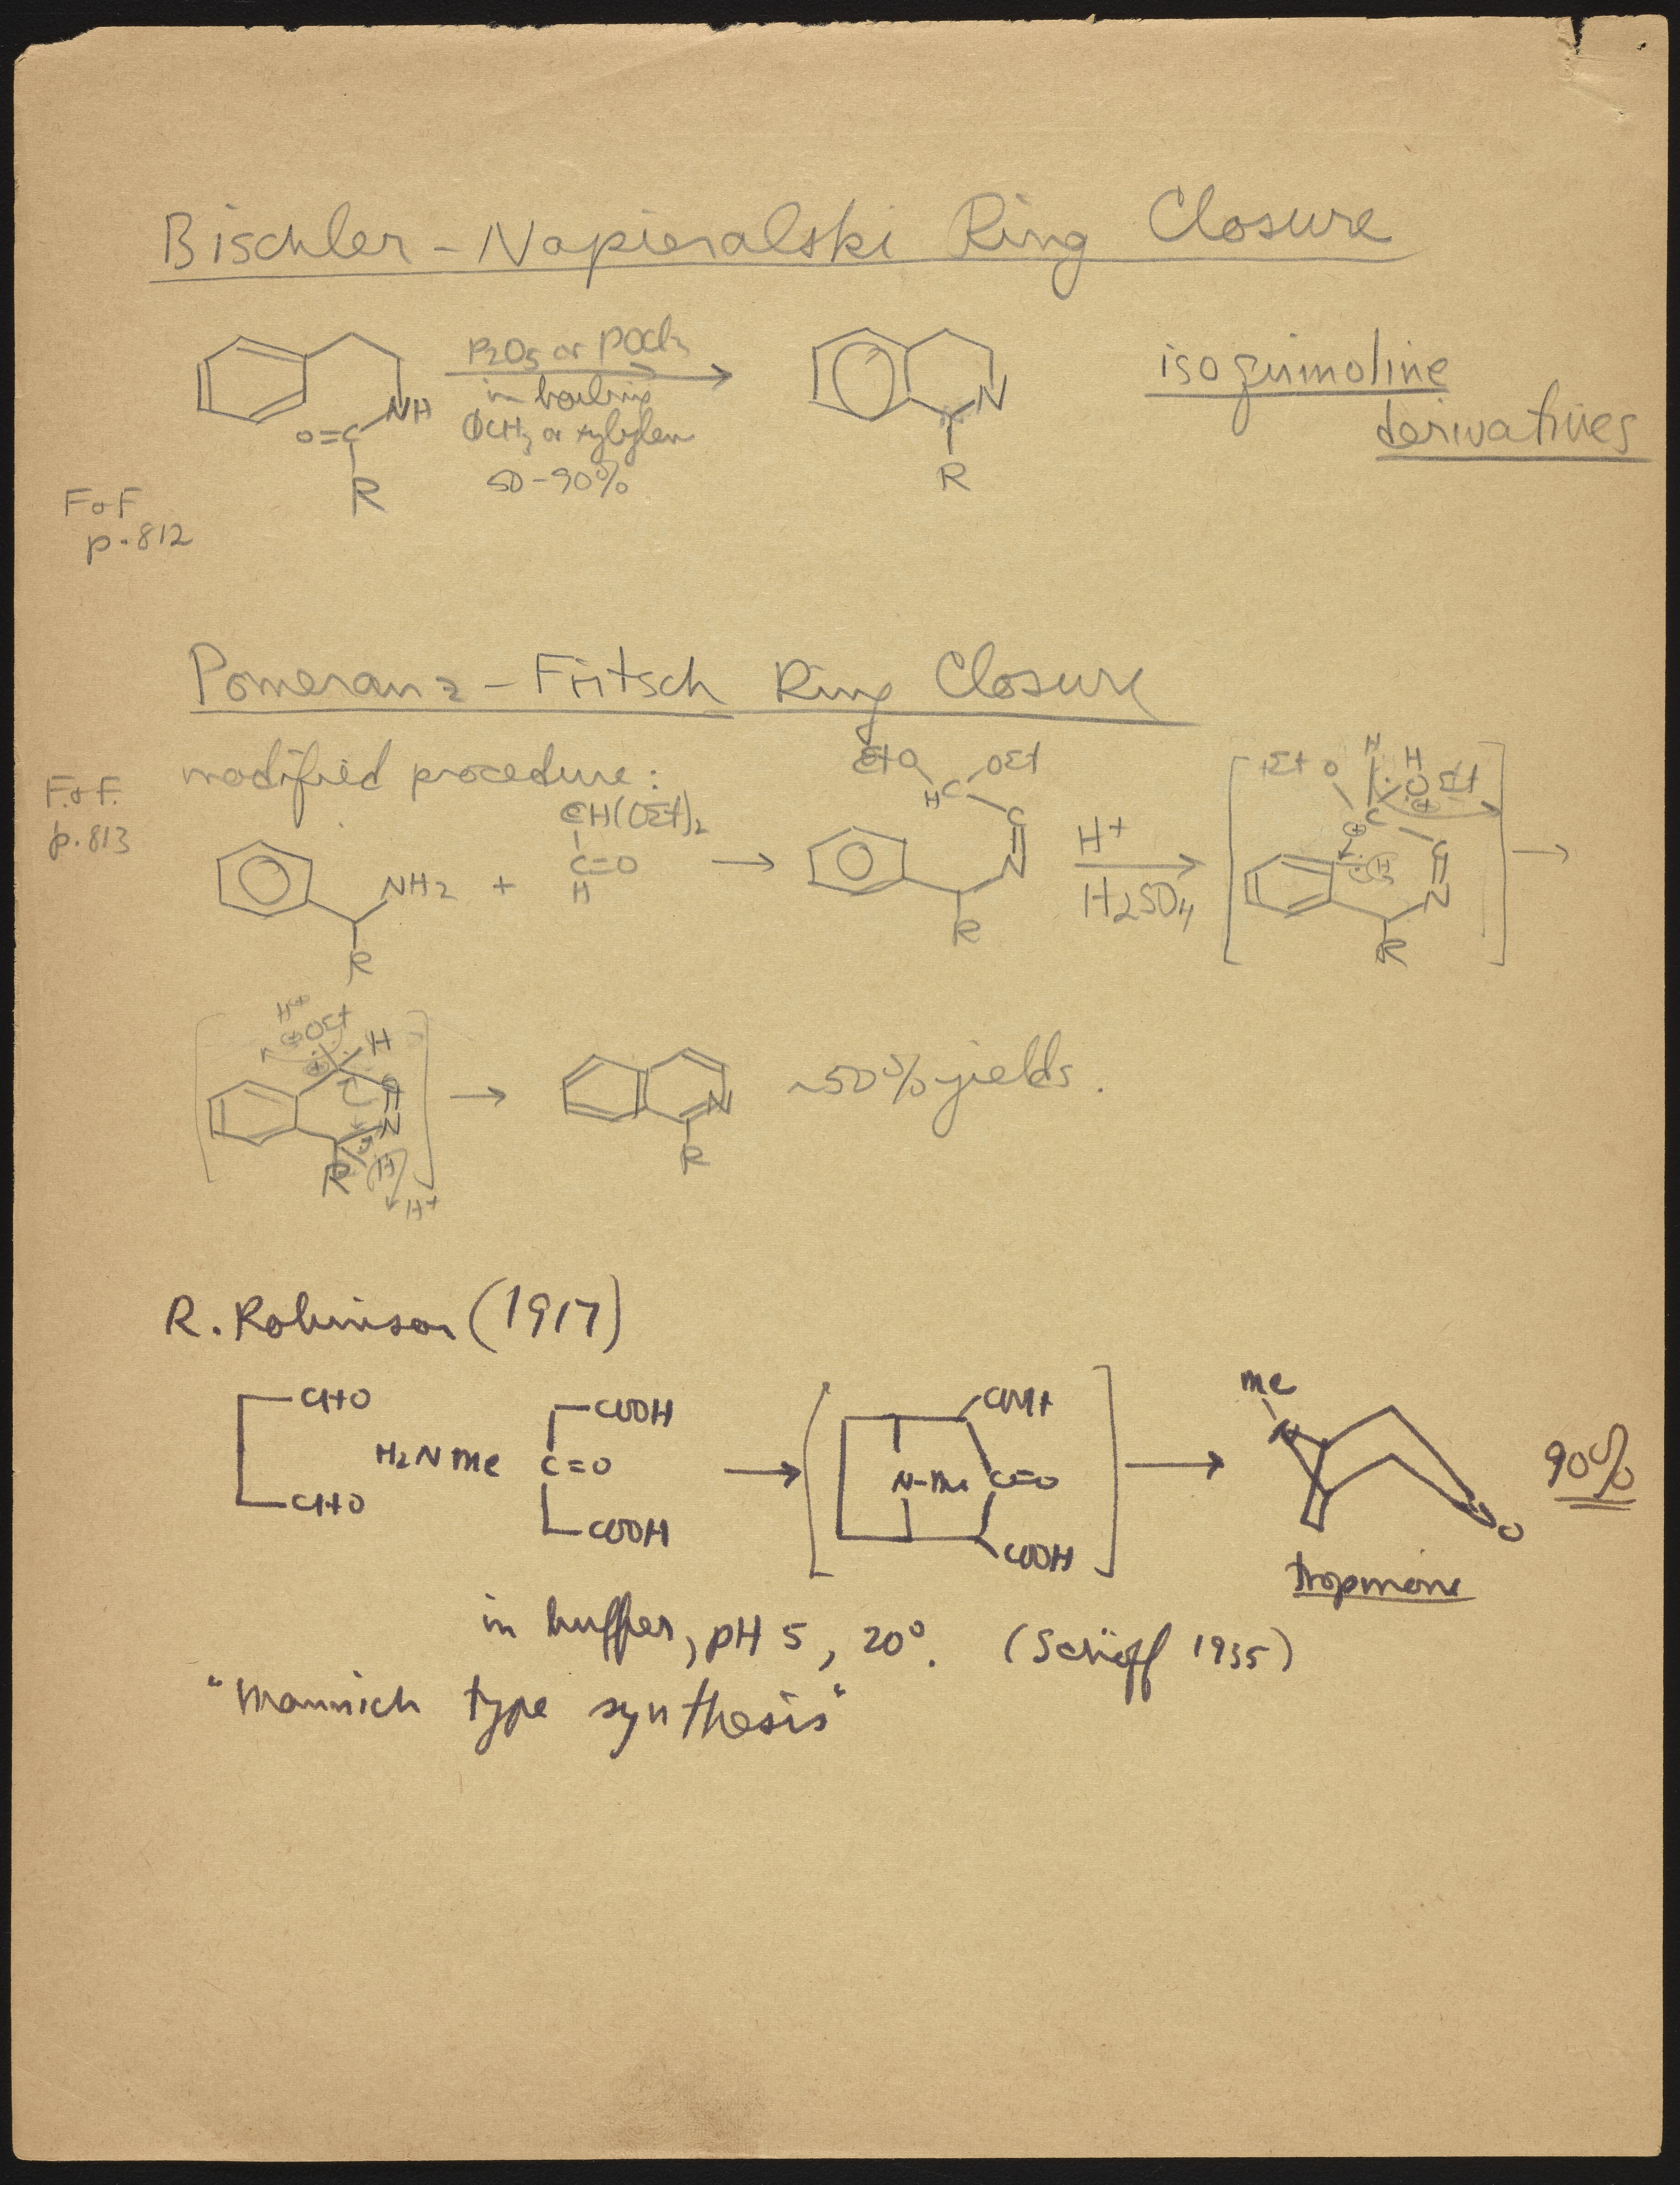 Bischler - Napieralski Ring Closure
P2O5 or POCl3
in boiling
ΦCH3 or xylylen
50-90%
NH
O=C
R
N
R
isoquinoline
derivatives
F & F
p. 812
Pomeranz - Fritsch Ring Closure
F. & F.
p. 813
modified procedure:
CH(OEt)2
C=O
H
NH2 +
R
EtO OEt
H C
C
N
R
H+
H2SO4
EtO H H
OEt
C
C
N
R
H+
OEt
H
N
R H
H+
N
R
~50% yields.
R. Robinson (1917)
CHO
CHO
H2NMe
COOH
C=O
COOH
N-Me C=O
COOH
Me
N
O
90%
tropinone
in buffer, pH 5, 20°. (Schöpf 1935)
"Mannich type synthesis"